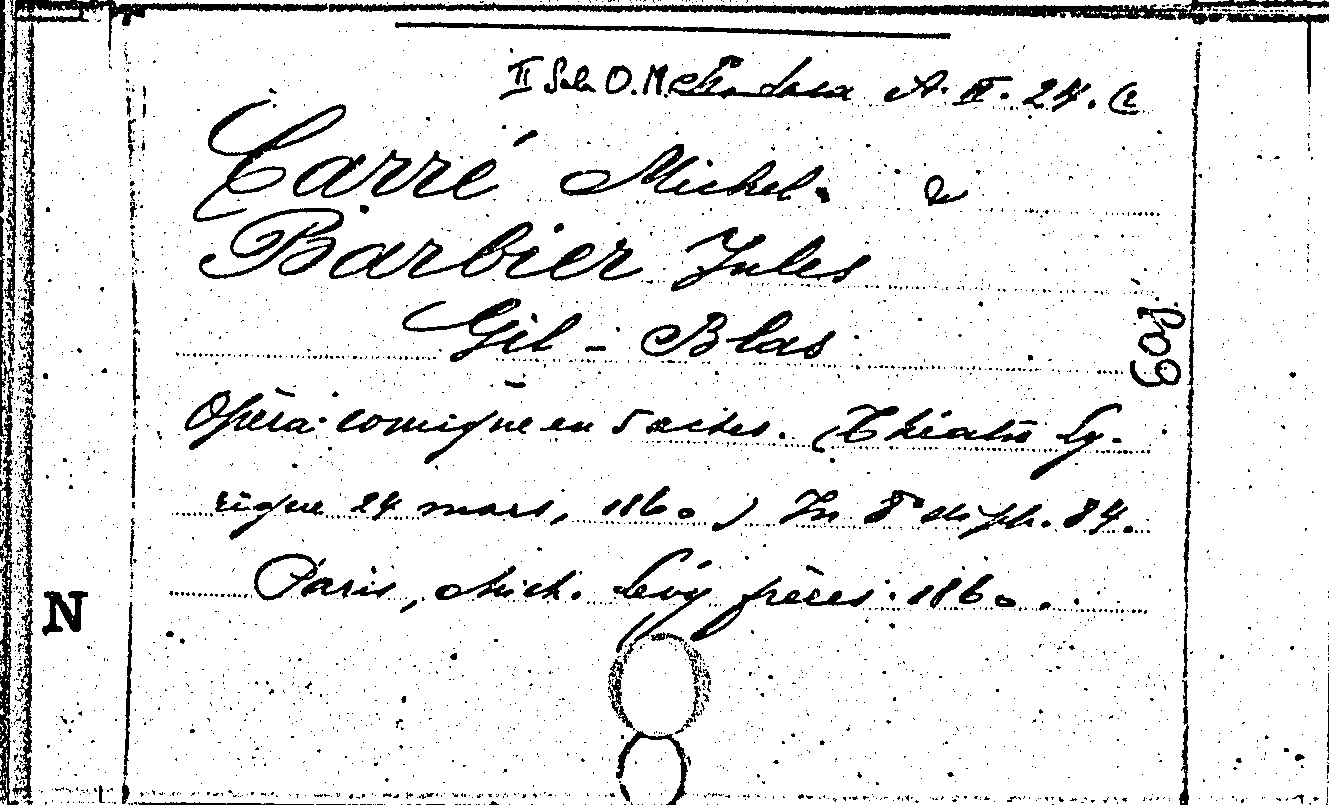 II Sala O.M. A. II. 24. (2
Carré Michel. e
Barbier Jules
Gil - Blas
Opéra-comique en 5 actes. (Théatre Ly-
rique 24 mars, 1860) In 8° de pp. 84.
Paris, Mich. Lévy frères. 1860.
N